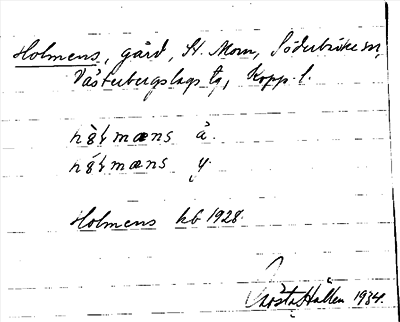 Holmens, gård, St. Mom, Söderbärke sn,
Västerbergslags tg, Kopp. l.
hɷ̀ɽmæns å.
hɷ́ɽmæns y.
Holmens kb 1928.
Gösta Hallén 1934.